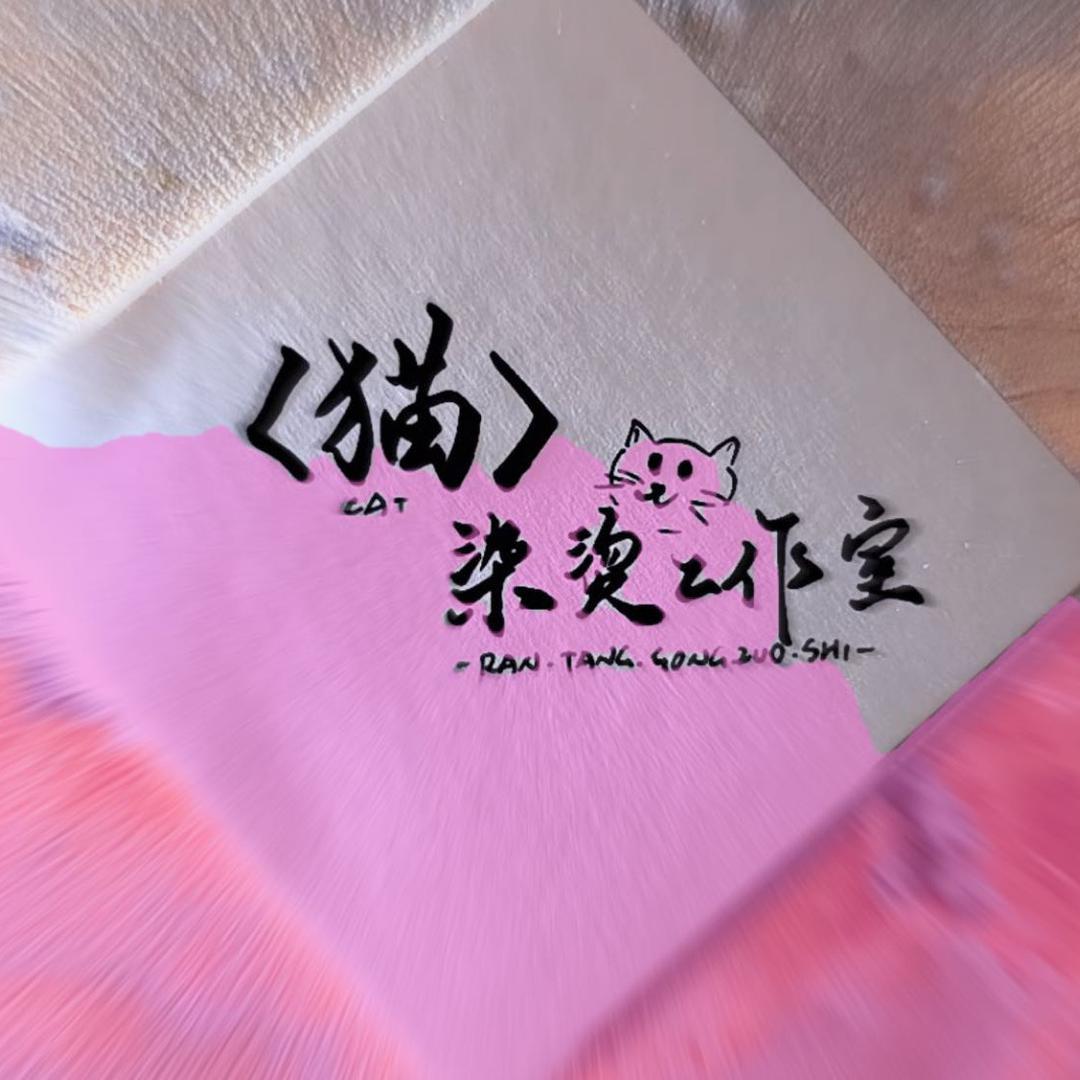 〈猫〉
CAT
染烫工作室
-RAN·TANG·GONG ZUO·SHI-